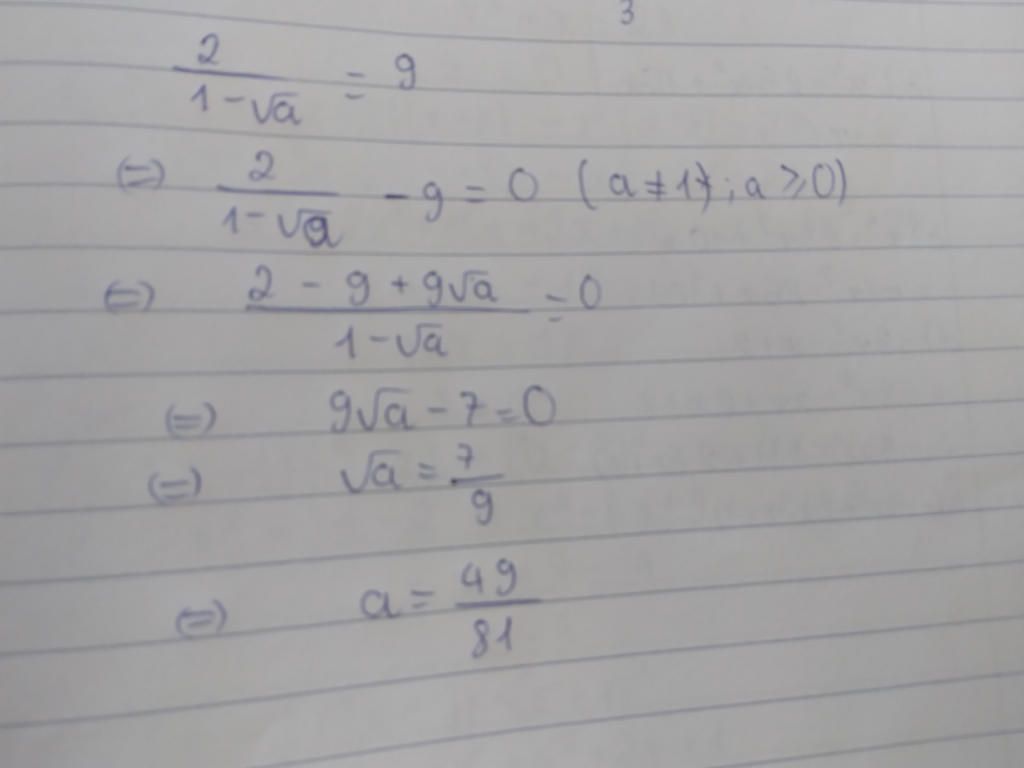 3
2/(1-√a) = 9
(=) 2/(1-√a) - 9 = 0 (a ≠ 1; a ≥ 0)
(=) (2 - 9 + 9√a)/(1-√a) = 0
(=) 9√a - 7 = 0
(=) √a = 7/9
(=) a = 49/81